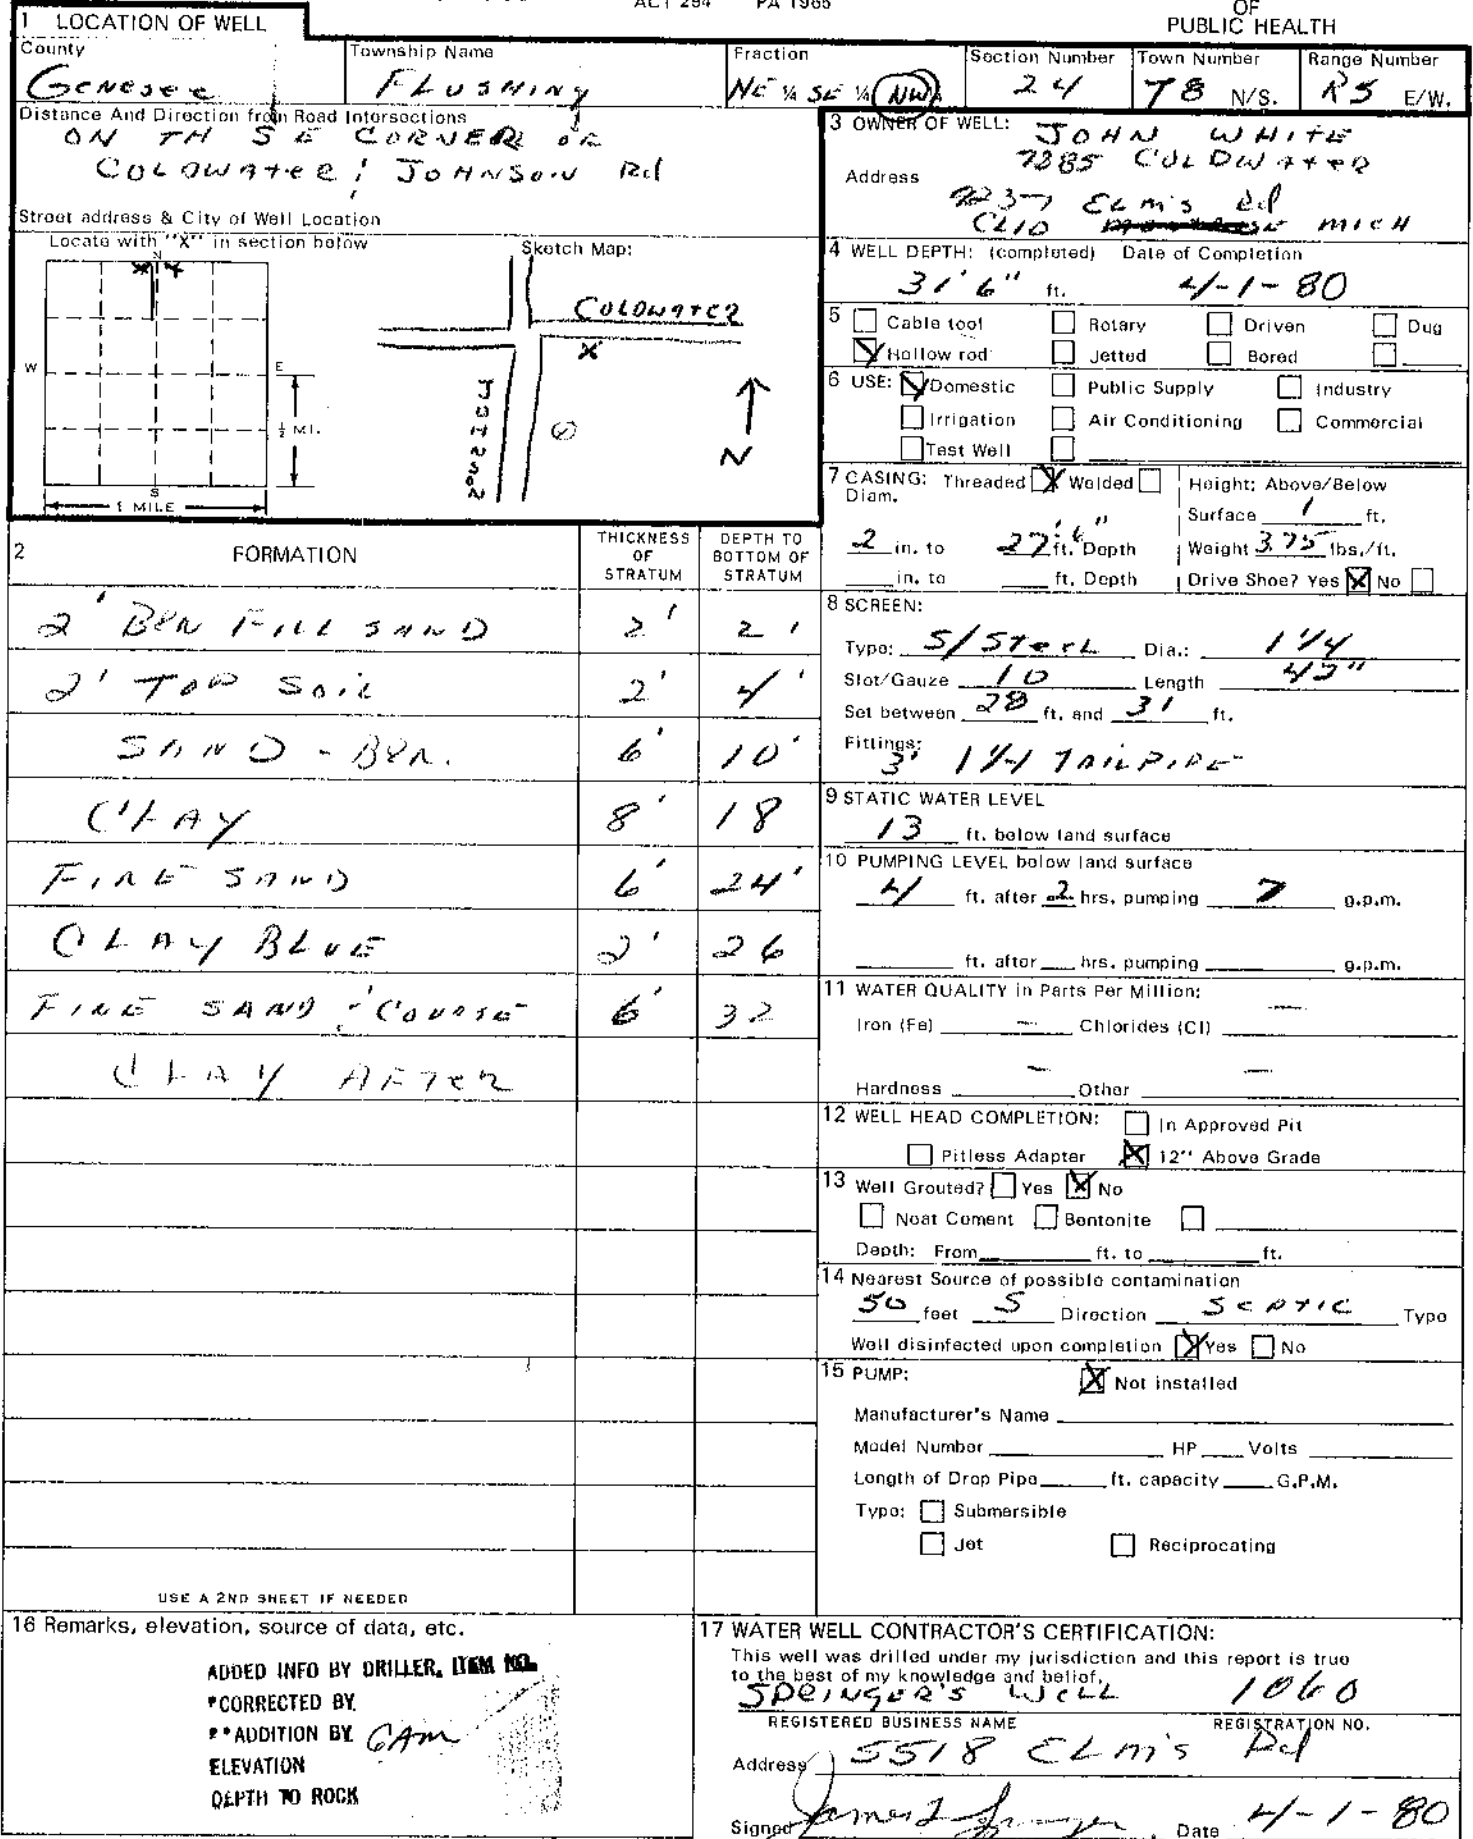 ACT 294 PA 1965
OF
PUBLIC HEALTH
1 LOCATION OF WELL
County
Genesee
Township Name
FLUSHING
Fraction
NE ¼ SE ¼ NW ¼
Section Number
24
Town Number
T8 N/S.
Range Number
R5 E/W.
Distance And Direction from Road Intersections
ON TH SE CORNER OF
COLDWATER & JOHNSON Rd
Street address & City of Well Location
Locate with "X" in section below
N
W
E
S
½ MI.
1 MILE
Sketch Map:
COLDWATER
X
JOHNSON
N
3 OWNER OF WELL:
JOHN WHITE
7285 COLDWATER
Address
9237 ELMS Rd
CLIO MICH
4 WELL DEPTH: (completed) Date of Completion
31'6" ft. 4-1-80
5 Cable tool Rotary Driven Dug
Hollow rod Jetted Bored
6 USE: Domestic Public Supply Industry
Irrigation Air Conditioning Commercial
Test Well
7 CASING: Threaded Welded
Diam.
2 in. to 27'6" ft. Depth
in. to ft. Depth
Height: Above/Below
Surface 1 ft.
Weight 3.75 lbs./ft.
Drive Shoe? Yes No
2 FORMATION THICKNESS OF STRATUM DEPTH TO BOTTOM OF STRATUM
2' BRN FILL SAND 2' 2'
2' TOP SOIL 2' 4'
SAND - BRN. 6' 10'
CLAY 8' 18
FINE SAND 6' 24'
CLAY BLUE 2' 26
FINE SAND & COURSE 6' 32
CLAY AFTER
USE A 2ND SHEET IF NEEDED
8 SCREEN:
Type: S/STEEL Dia.: 1 1/4
Slot/Gauze 10 Length 42"
Set between 28 ft. and 31 ft.
Fittings:
3' 1 1/4 TAILPIPE
9 STATIC WATER LEVEL
13 ft. below land surface
10 PUMPING LEVEL below land surface
4 ft. after 2 hrs. pumping 7 g.p.m.
ft. after hrs. pumping g.p.m.
11 WATER QUALITY in Parts Per Million:
Iron (Fe) — Chlorides (Cl) —
Hardness — Other —
12 WELL HEAD COMPLETION: In Approved Pit
Pitless Adapter 12" Above Grade
13 Well Grouted? Yes No
Neat Cement Bentonite
Depth: From ft. to ft.
14 Nearest Source of possible contamination
50 feet S Direction SEPTIC Type
Well disinfected upon completion Yes No
15 PUMP: Not installed
Manufacturer's Name
Model Number HP Volts
Length of Drop Pipe ft. capacity G.P.M.
Type: Submersible
Jet Reciprocating
16 Remarks, elevation, source of data, etc.
ADDED INFO BY DRILLER, ITEM NO.
*CORRECTED BY
**ADDITION BY GAM
ELEVATION
DEPTH TO ROCK
17 WATER WELL CONTRACTOR'S CERTIFICATION:
This well was drilled under my jurisdiction and this report is true
to the best of my knowledge and belief.
SPRINGER'S WELL 1060
REGISTERED BUSINESS NAME REGISTRATION NO.
Address 5518 ELMS Rd
Signed James L Springer Date 4-1-80